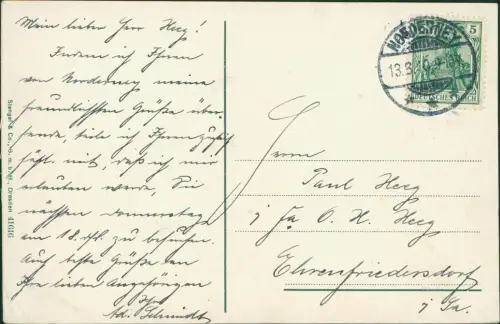 Mein lieber Herr Heeg!
Indem ich Ihnen
von Norderney meine
freundlichsten Grüße über-
sende, teile ich Ihnen zugleich
höfl. mit, daß ich mir
erlauben werde, Sie
nächsten Donnerstag
am 18. ds. zu besuchen.
Auf beste Grüße an
Ihre lieben Angehörigen
Ihr
Ad. Schmidt
Stengel & Co., G. m. b. H., Dresden 41636
NORDERNEY
13.8.
5
DEUTSCHES REICH
Herrn
Paul Heeg
i/Fa O. H. Heeg
Ehrenfriedersdorf
i/Sa.